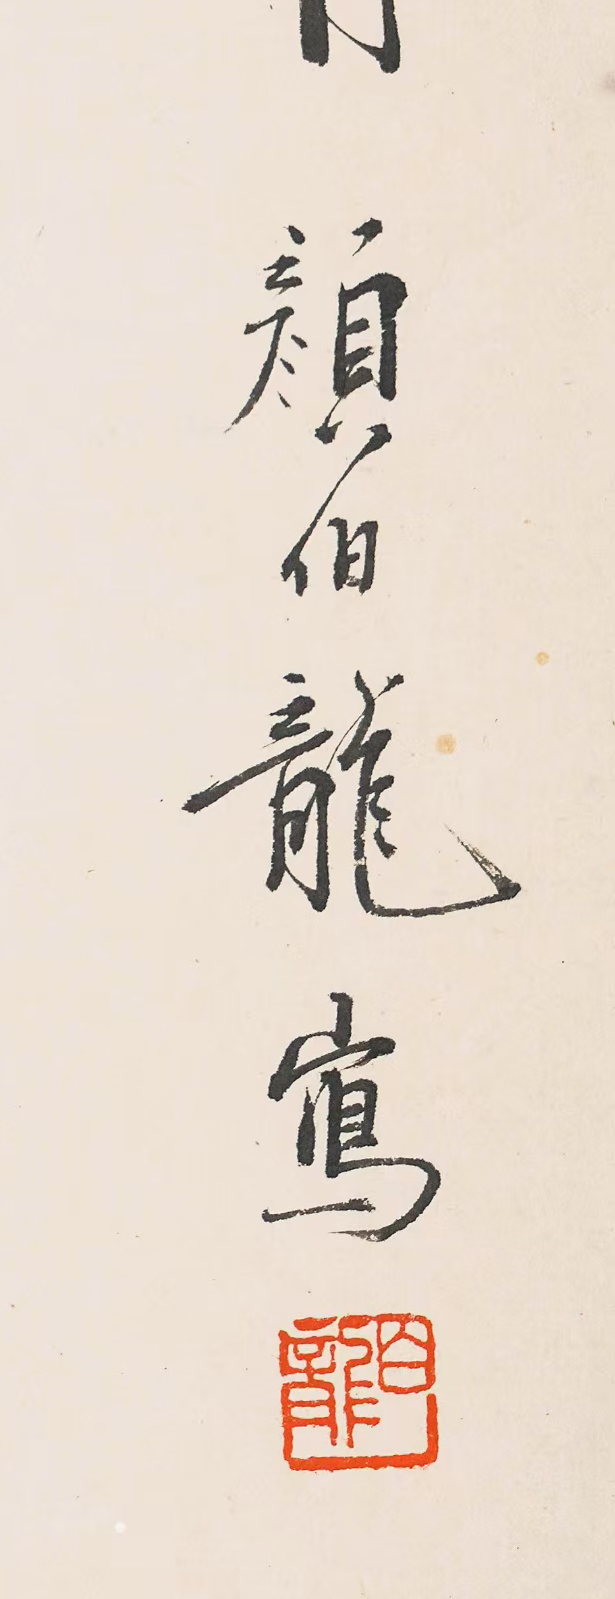 顏伯龍寫
伯龍